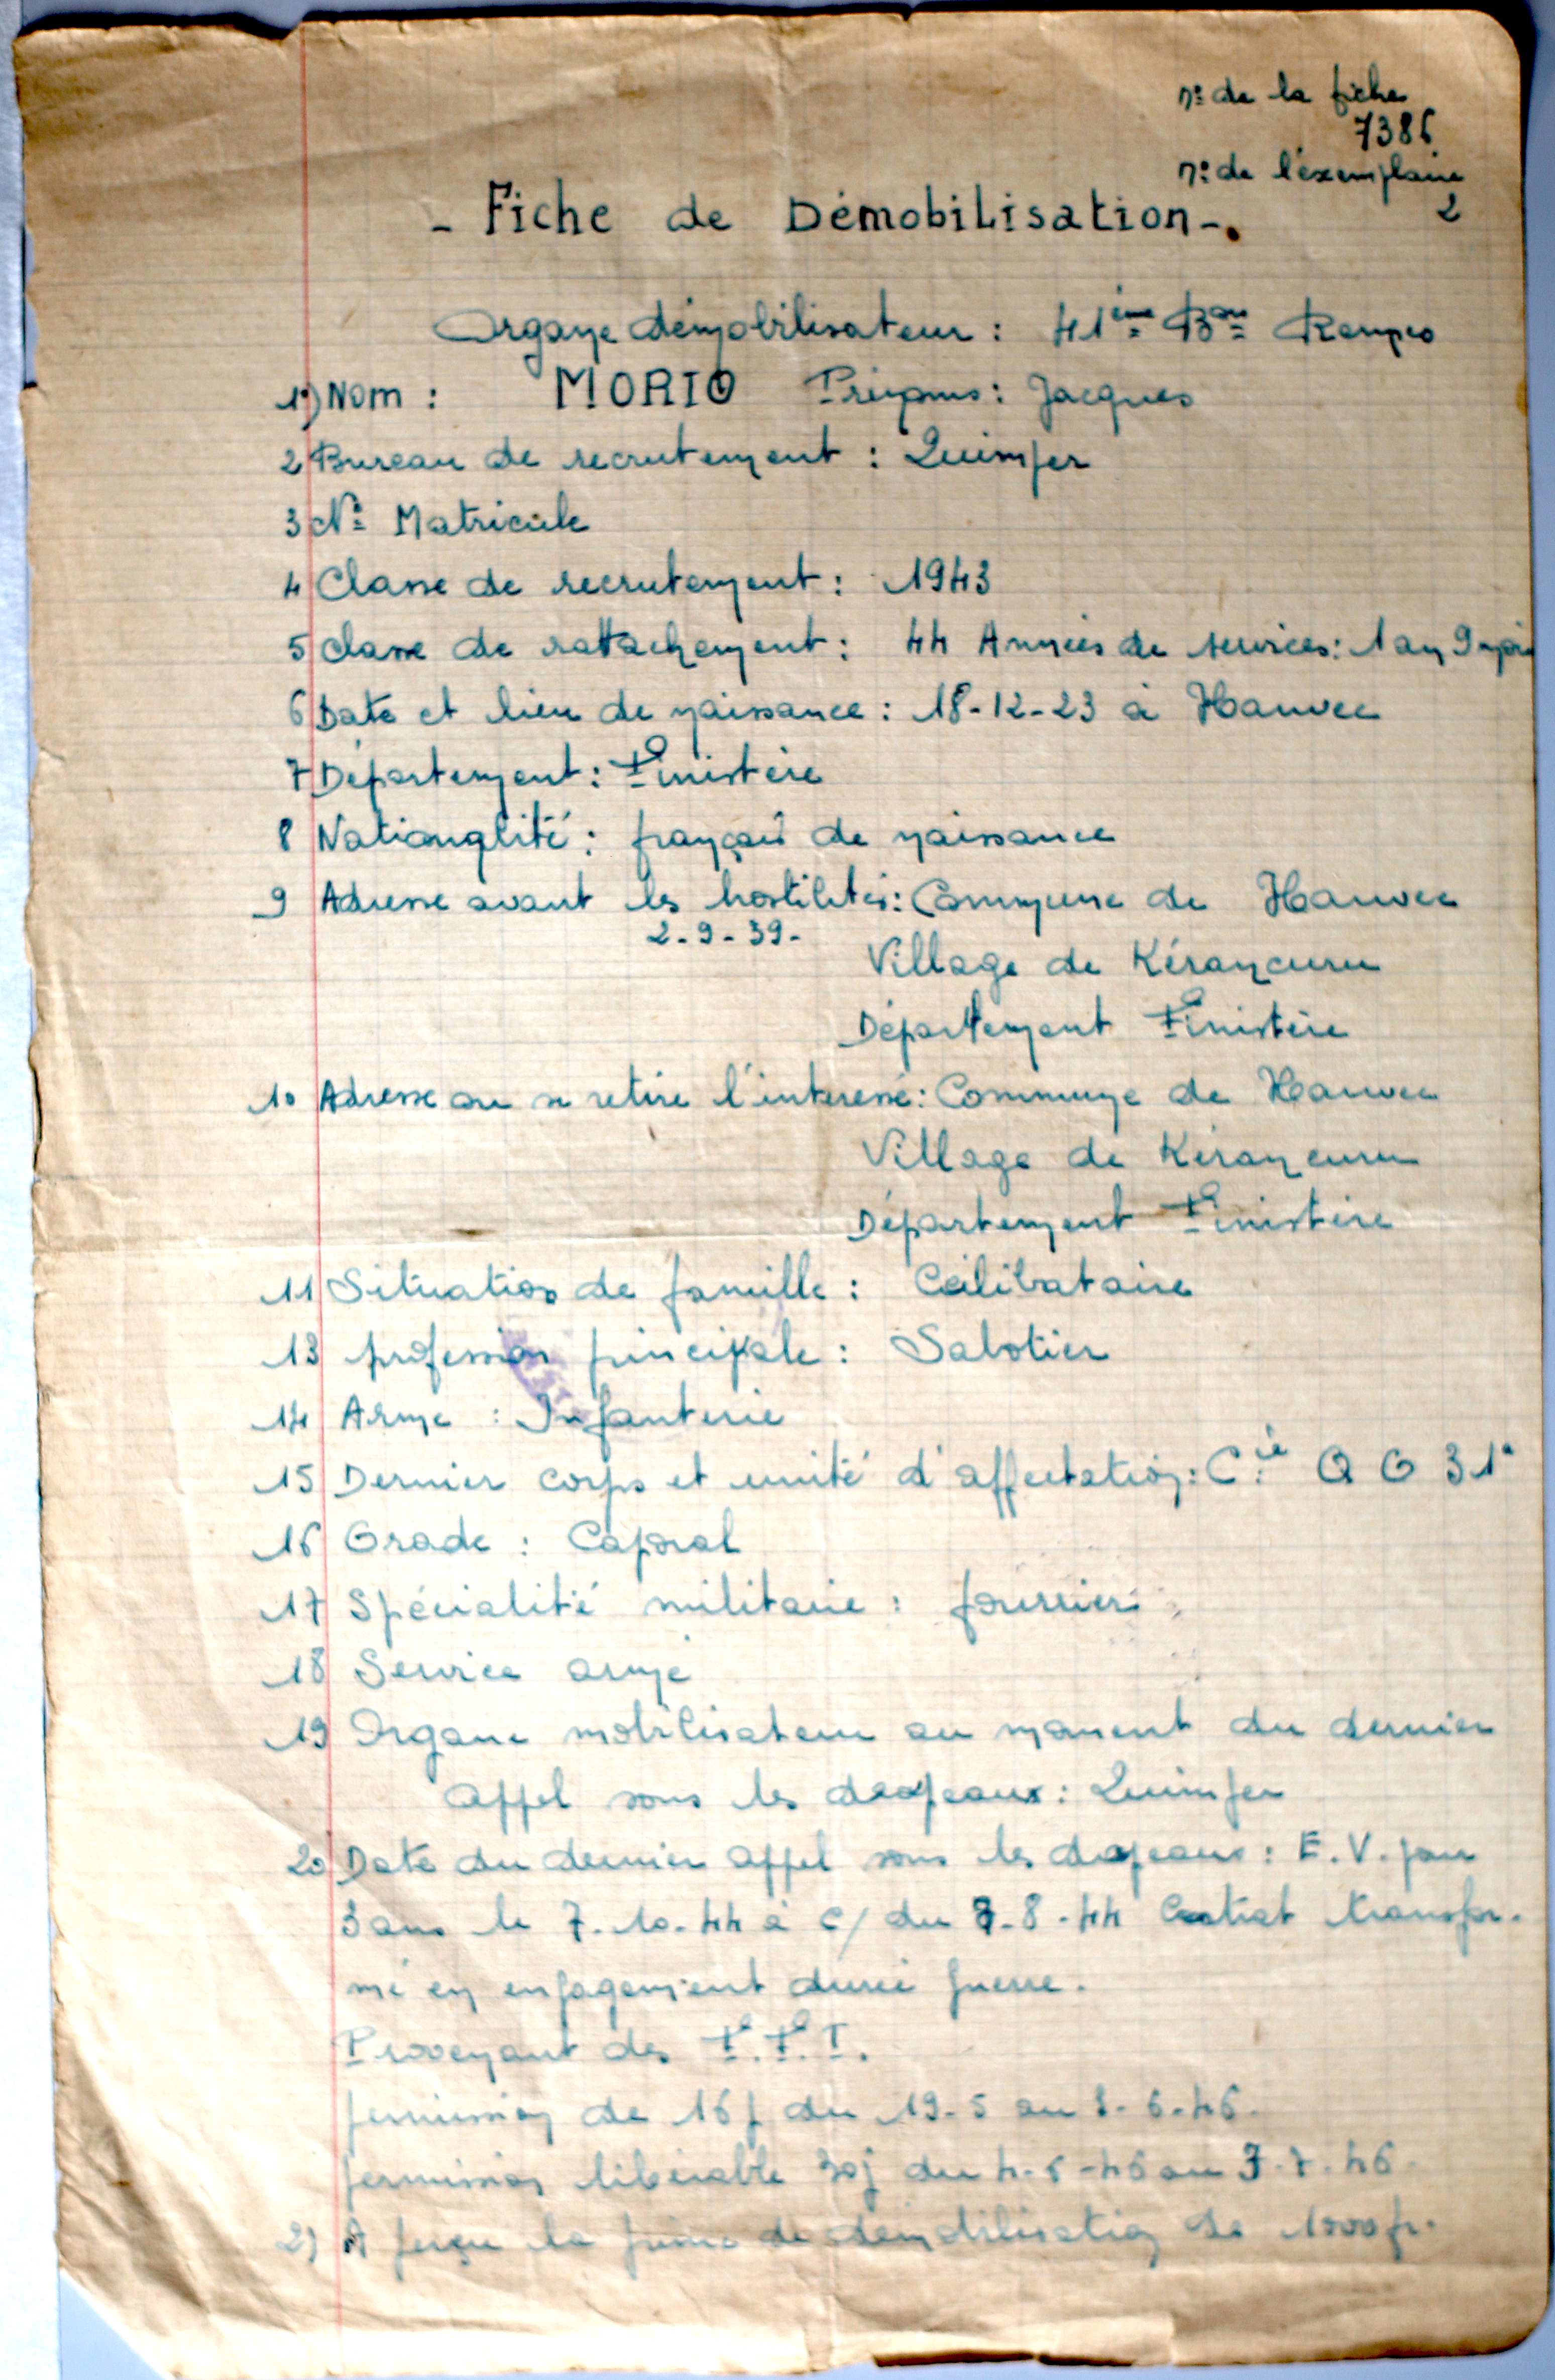 n° de la fiche
7386
n° de l'exemplaire
2
- Fiche de Démobilisation -.
Organe démobilisateur : 41ème Bon
1°) Nom : MORIO Prénoms : Jacques
2 Bureau de recrutement : Quimper
3 N° Matricule
4 Classe de recrutement : 1943
5 Classe de rattachement : 44 Années de services : 1 an 9 mois
6 Date et lieu de naissance : 18-12-23 à Hanvec
7 Département : Finistère
8 Nationalité : français de naissance
9 Adresse avant les hostilités : Commune de Hanvec
2-9-39-
Village de Kérancuru
Département Finistère
10 Adresse ou se retire l'interessé : Commune de Hanvec
Village de Kérancuru
Département Finistère
11 Situation de famille : Célibataire
13 profession principale : Sabotier
14 Arme : Infanterie
15 Dernier corps et unité d'affectation : Cie Q G 31°
16 Grade : Caporal
17 Spécialité militaire : fourrier
18 Service armé
19 Organe mobilisateur au moment du dernier
appel sous les drapeaux : Quimper
20 Date du dernier appel sous les drapeaux : E.V. pour
3 ans le 7-10-44 à c/ du 7-8-44 Contrat transfor-
mé en engagement durée guerre.
Provenant des F.F.I.
permission de 16 j du 19-5 au 3-6-46.
permission libérable 30j du 4-6-46 au 3-7-46.
21 A perçu la prime de démobilisation de 1000 fr.